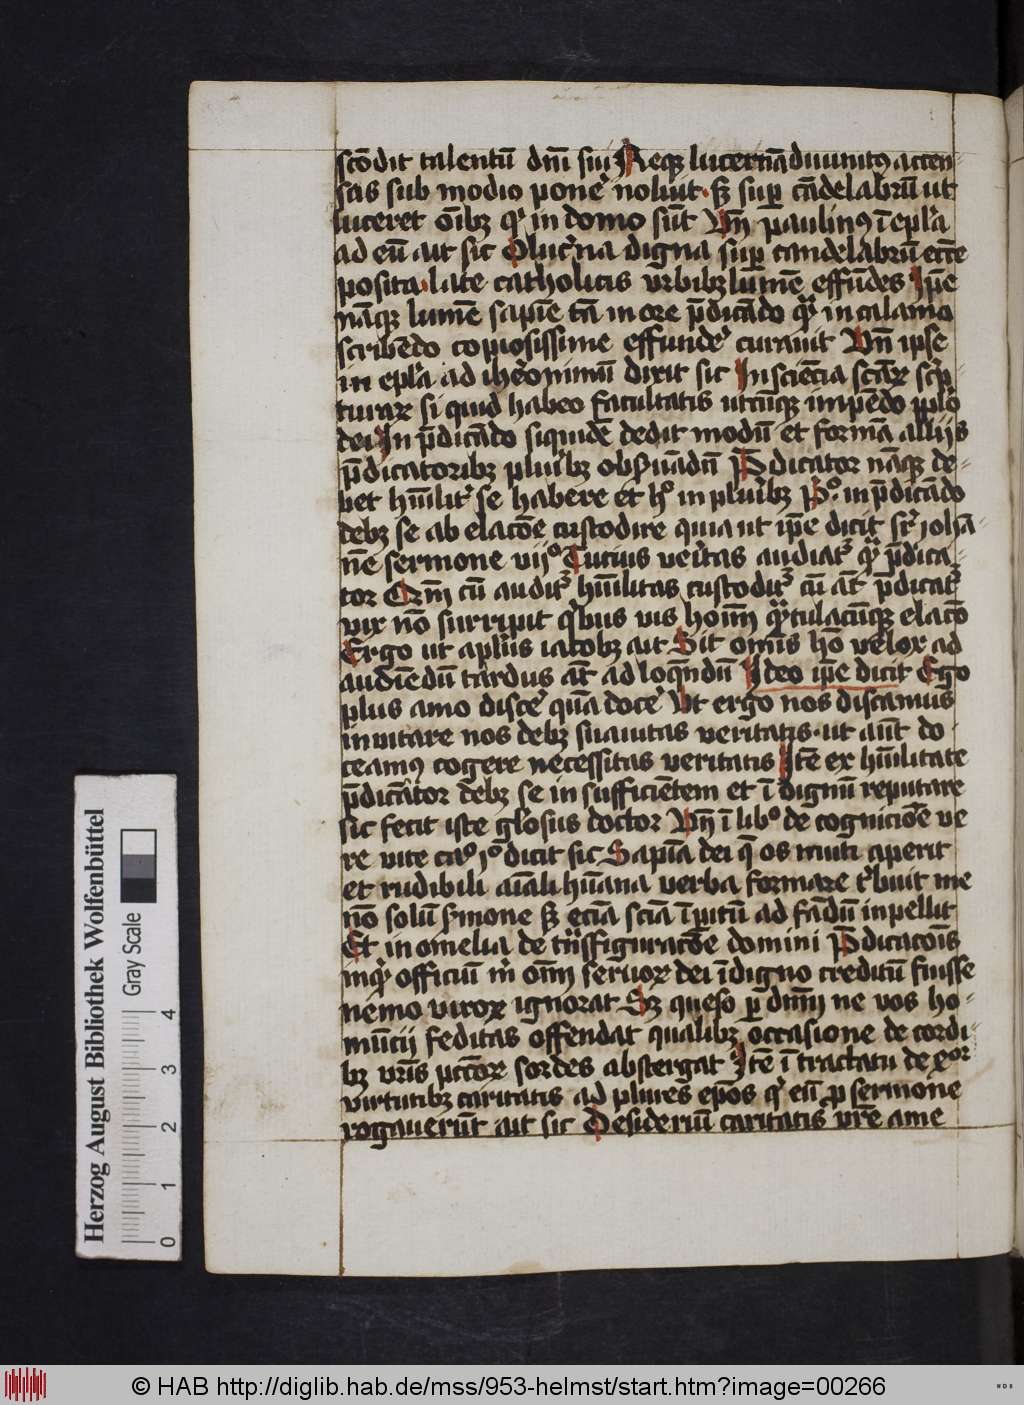 scōdit talentū dnī sui Neqꝫ lucernā diuinitꝰ accen-
sas sub modio pone͛ noluit · sꝫ suꝑ cādelabrū ut
luceret oībꝫ q͛ in domo sūt Vn̄ paulinꝰ ī epl̓a
ad eū ait sic O luc͛na digna suꝑ candelabrū ecc̄e
posita · late catholicis vrbibꝫ lumē effūdes Ip̄e
nāqꝫ lumē sapīe tā in ore p̄dicādo qͣꝫ in calamo
scribēdo copiosissime effunde͛ curauit Vn̄ ipse
in epl̓a ad ihe͛onimū dixit sic In sciēcia scāꝝ sc͛p-
turaꝝ si quid habeo facultatis utcūqꝫ impēdo pplō
dei In p̄dicādo siquidē dedit modū et formā alijs
p̄dicatoribꝫ plurībꝫ obẜuādū P̄dicator nāqꝫ de-
bet hūilit͛ se habere et hͦ in plurībꝫ Pͦ in p̄dicādo
debꝫ se ab elacōe custodire quia ut ip̄e dicit suꝑ johā-
nē sermone vijͦ Tucius ve͛itas audiat͛ qͣꝫ p̄dica-
tor Qm̄ cū audit͛ hūilitas custodit͛ cū aūt p̄dicat͛
vix nō surripit q͛bus vis hoīm qͣꝫtulacūqꝫ elacō
Ergo ut apl̓us iacobꝫ ait Sit omīs hō velox ad
audiēdū tardus aūt ad loquēdū Ideo ip̄e dicit Ego
plus amo disce͛ quā doce͛ Vt ergo nos discamus
inuitare nos debꝫ suauitas veritatis · ut aūt do
ceamꝰ cogere necessitas veritatis Itē ex hūilitate
p̄dicator debꝫ se insufficiētem et īdignū reputare
sic fecit iste gl̓osus doctor Vn̄ ī libͦ de cognicōe ve
re vite caͦ jͦ dicit sic Sapīa dei q̄ os muti aperit
et rudibili aīali hūana verba formare t͛buit me
nō solū ẜmone sꝫ eciā sciā īpitū ad fādū inpellit
Et in omelia de trāsfiguracōe domini P̄dicacoīs
inq͛ officiū m̄ om̄ seruoꝝ dei īdigno creditū fuisse
nemo viroꝝ ignorat Sꝫ queso ꝑ dn̄m ne vos ho-
mūcij feditas offendat qualibꝫ occasione de cordi-
bꝫ vr̄is pcc̄oꝝ sordes abstergat Itē ī tractatu de xͦʳ
virtutibꝫ caritatis ad plures ep̄os q͛ eū ꝓ sermone
rogauerūt ait sic Desideriū caritatis vr̄e ame
Herzog August Bibliothek Wolfenbüttel
Gray Scale
0 1 2 3 4
© HAB http://diglib.hab.de/mss/953-helmst/start.htm?image=00266